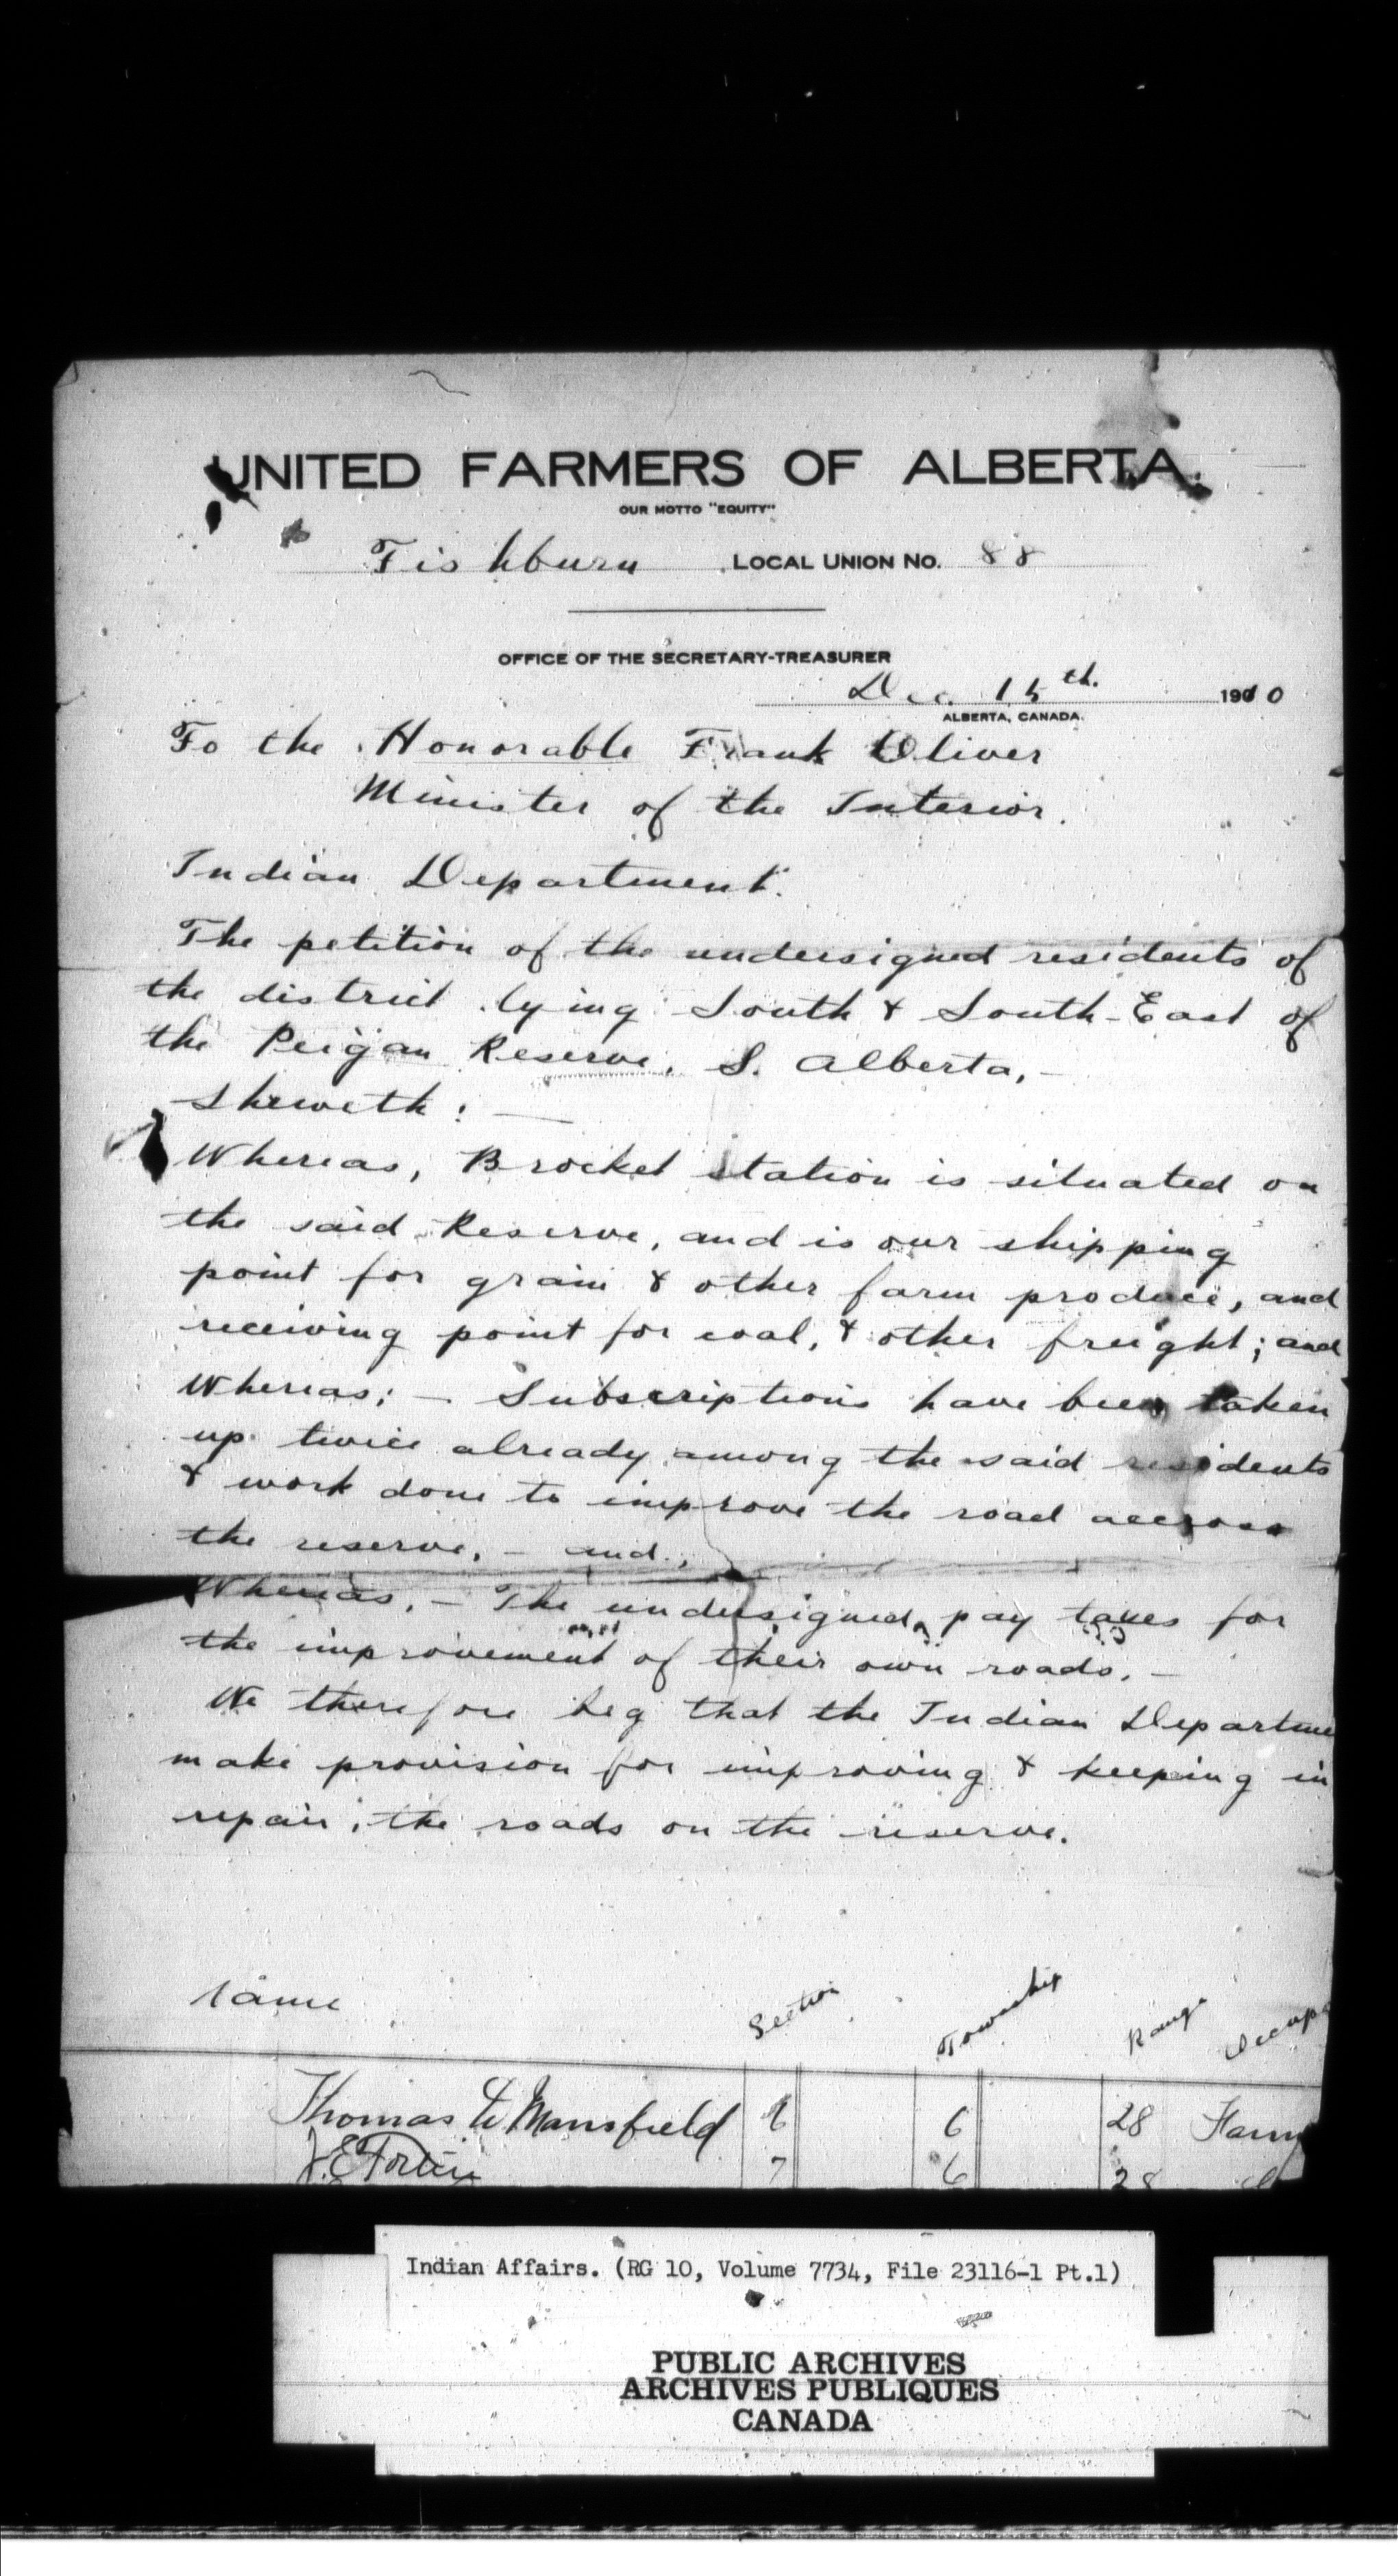 UNITED FARMERS OF ALBERTA.
OUR MOTTO "EQUITY"
Fishburn LOCAL UNION NO. 88
OFFICE OF THE SECRETARY-TREASURER
Dec. 15th. 1910
ALBERTA, CANADA.
To the Honorable Frank Oliver
Minister of the Interior.
Indian Department.
The petition of the undersigned residents of
the district lying South & South-East of
the Peigan Reserve, S. Alberta,-
sheweth: —
Whereas, Brocket station is situated on
the said Reserve, and is our shipping
point for grain & other farm produce, and
receiving point for coal, & other freight; and
Whereas; - Subscriptions have been taken
up twice already among the said residents
& work done to improve the road accross
the reserve, - and,
Whereas, - The undersigned pay taxes for
the improvement of their own roads. -
We therefore beg that the Indian Departme
make provision for improving & keeping in
repair, the roads on the reserve.
name Section Township Range Occupa
Thomas W Mansfield 6 6 28 Farm
J. E. Fortin 7 6 28
Indian Affairs. (RG 10, Volume 7734, File 23116-1 Pt.1)
PUBLIC ARCHIVES
ARCHIVES PUBLIQUES
CANADA